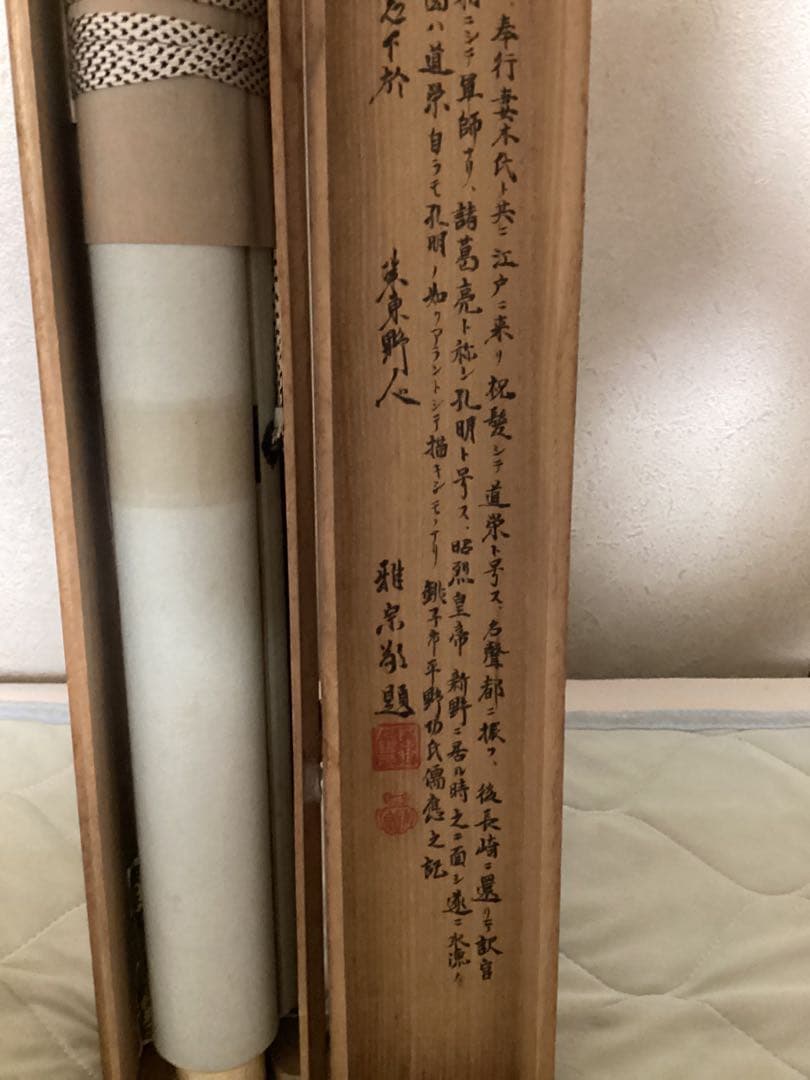 奉行妻木氏ト共ニ江戸ニ来リ祝髪シテ道栄ト号ス、名聲都ニ振フ、後長崎ニ還リテ訳官
ニシテ軍師ナリ、諸葛亮ト称シ孔明ト号ス、昭烈皇帝新野ニ居ル時之ニ面シ遂ニ水漁ノ
図ハ道栄自ラモ孔明ノ如クアラントシテ描キシモノナリ 銚子市平野功氏儒應之記
下於 東野人 雅宗敬題